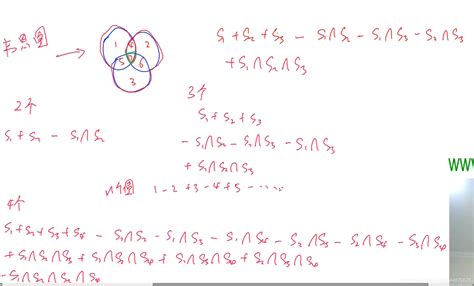 韦恩图
1 4 2
5 6
3
S1 + S2 + S3 - S1∩S2 - S1∩S3 - S2∩S3
+ S1∩S2∩S3
2个
S1 + S2 - S1∩S2
3个
S1 + S2 + S3
- S1∩S2 - S1∩S3 - S2∩S3
+ S1∩S2∩S3
n个圆 1 - 2 + 3 - 4 + 5 - ……
4个
S1 + S2 + S3 + S4 - S1∩S2 - S1∩S3 - S1∩S4 - S2∩S3 - S2∩S4 - S3∩S4
+ S1∩S2∩S3 + S1∩S2∩S4 + S1∩S3∩S4 + S2∩S3∩S4
- S1∩S2∩S3∩S4
WW